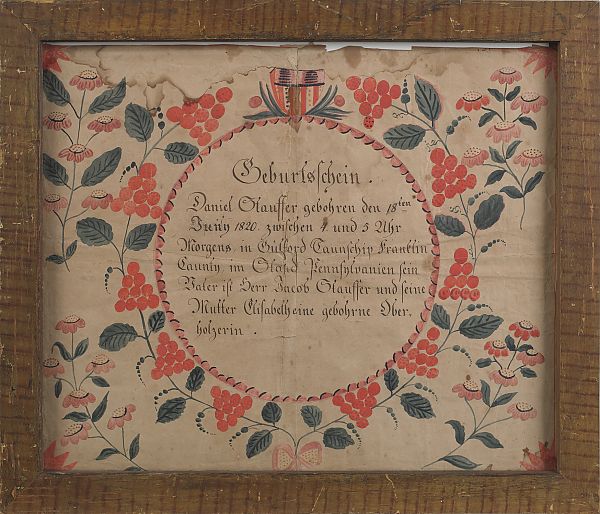 Geburtsschein.
Daniel Stauffer gebohren den 18ten
Juny 1820 zwischen 4 und 5 Uhr
Morgens in Guilford Taunschip Franklin
Caunty im Staad Pennsylvanien sein
Vater ist Herr Jacob Stauffer und seine
Mutter Elisabeth eine gebohrne Ober-
holzerin.